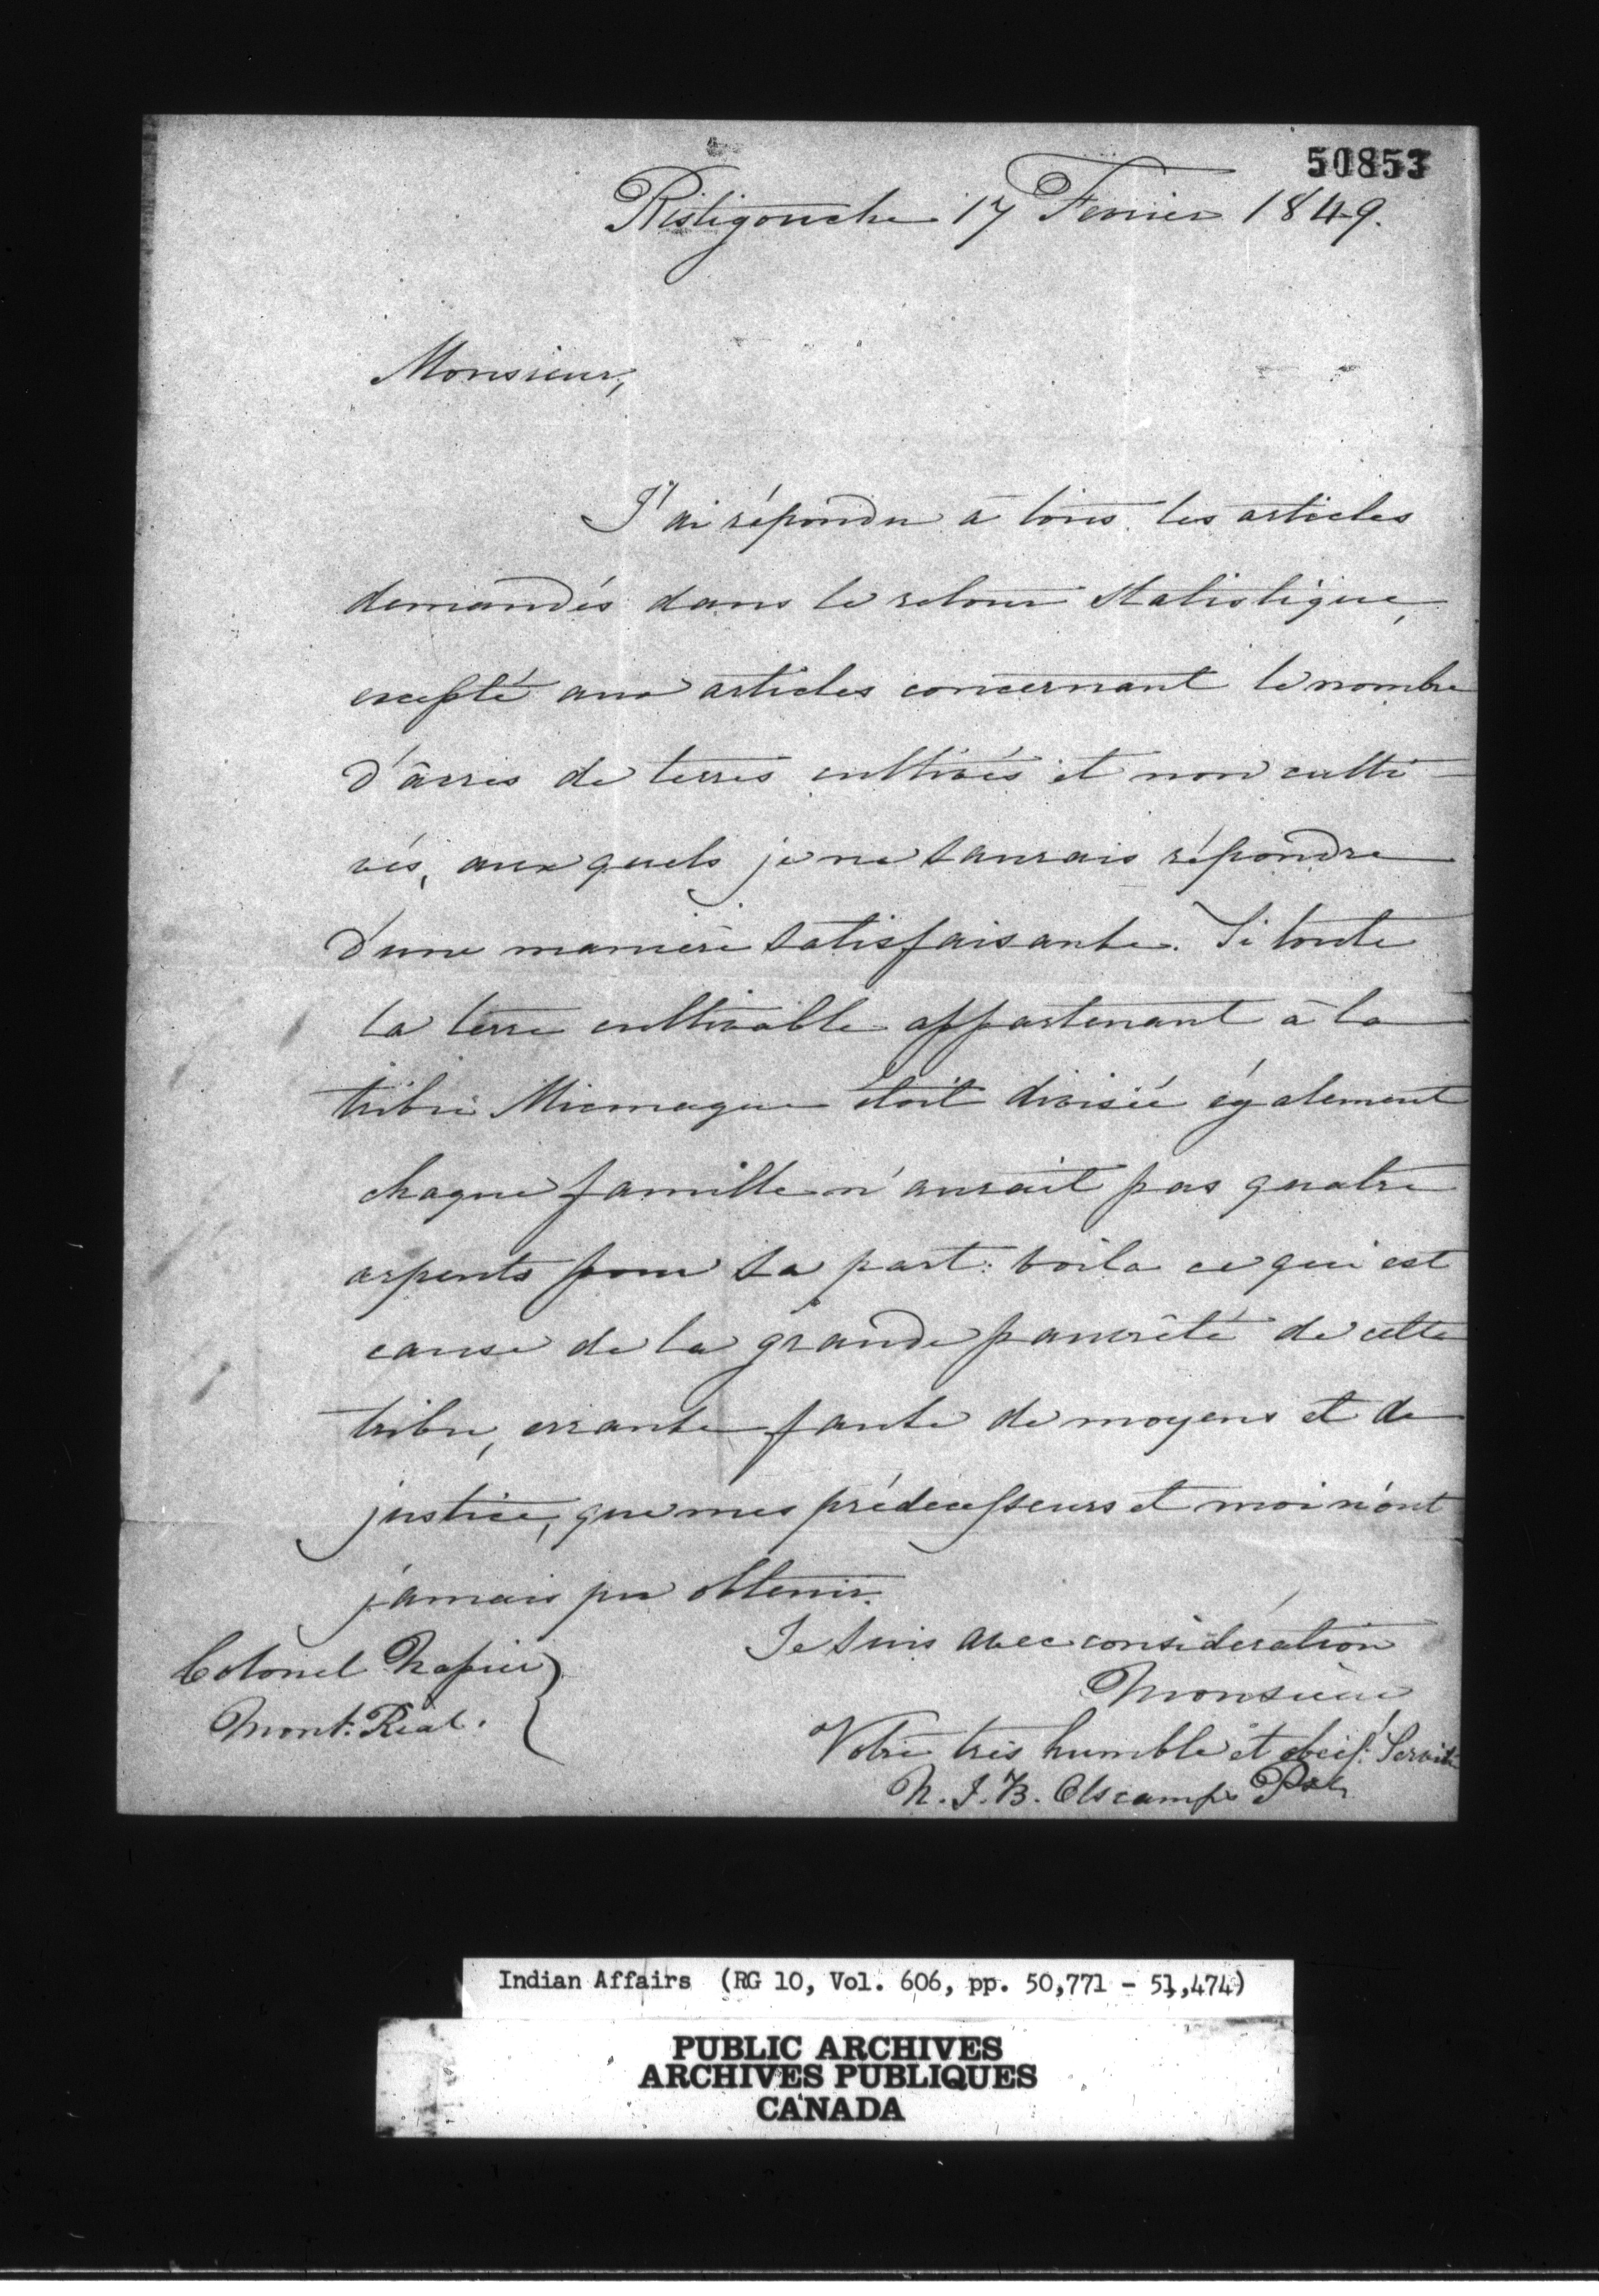 50853
Ristigouche 17 Fevrier 1849.
Monsieur,
J'ai répondu à tous les articles
demandés dans le retour statistique,
excepté aux articles concernant le nombre
d'âcres de terres cultivés et non culti-
vés, aux quels je ne saurais répondre
d'une manière satisfaisante. Si toute
la terre cultivable appartenant à la
tribu Micmaque étoit divisée également
chaque famille n'aurait pas quatre
arpents pour sa part: voila ce qui est
cause de la grande pauvrêté de cette
tribu, errante faute de moyens et de
justice, que mes prédécesseurs et moi n'ont
jamais pu obtenir.
Je suis avec considération
Monsieur
Votre très humble et obéis. Servit
N. J. B. Olscamps Ptre
Colonel Napier
Mont. Réal.
Indian Affairs (RG 10, Vol. 606, pp. 50,771 - 51,474)
PUBLIC ARCHIVES
ARCHIVES PUBLIQUES
CANADA